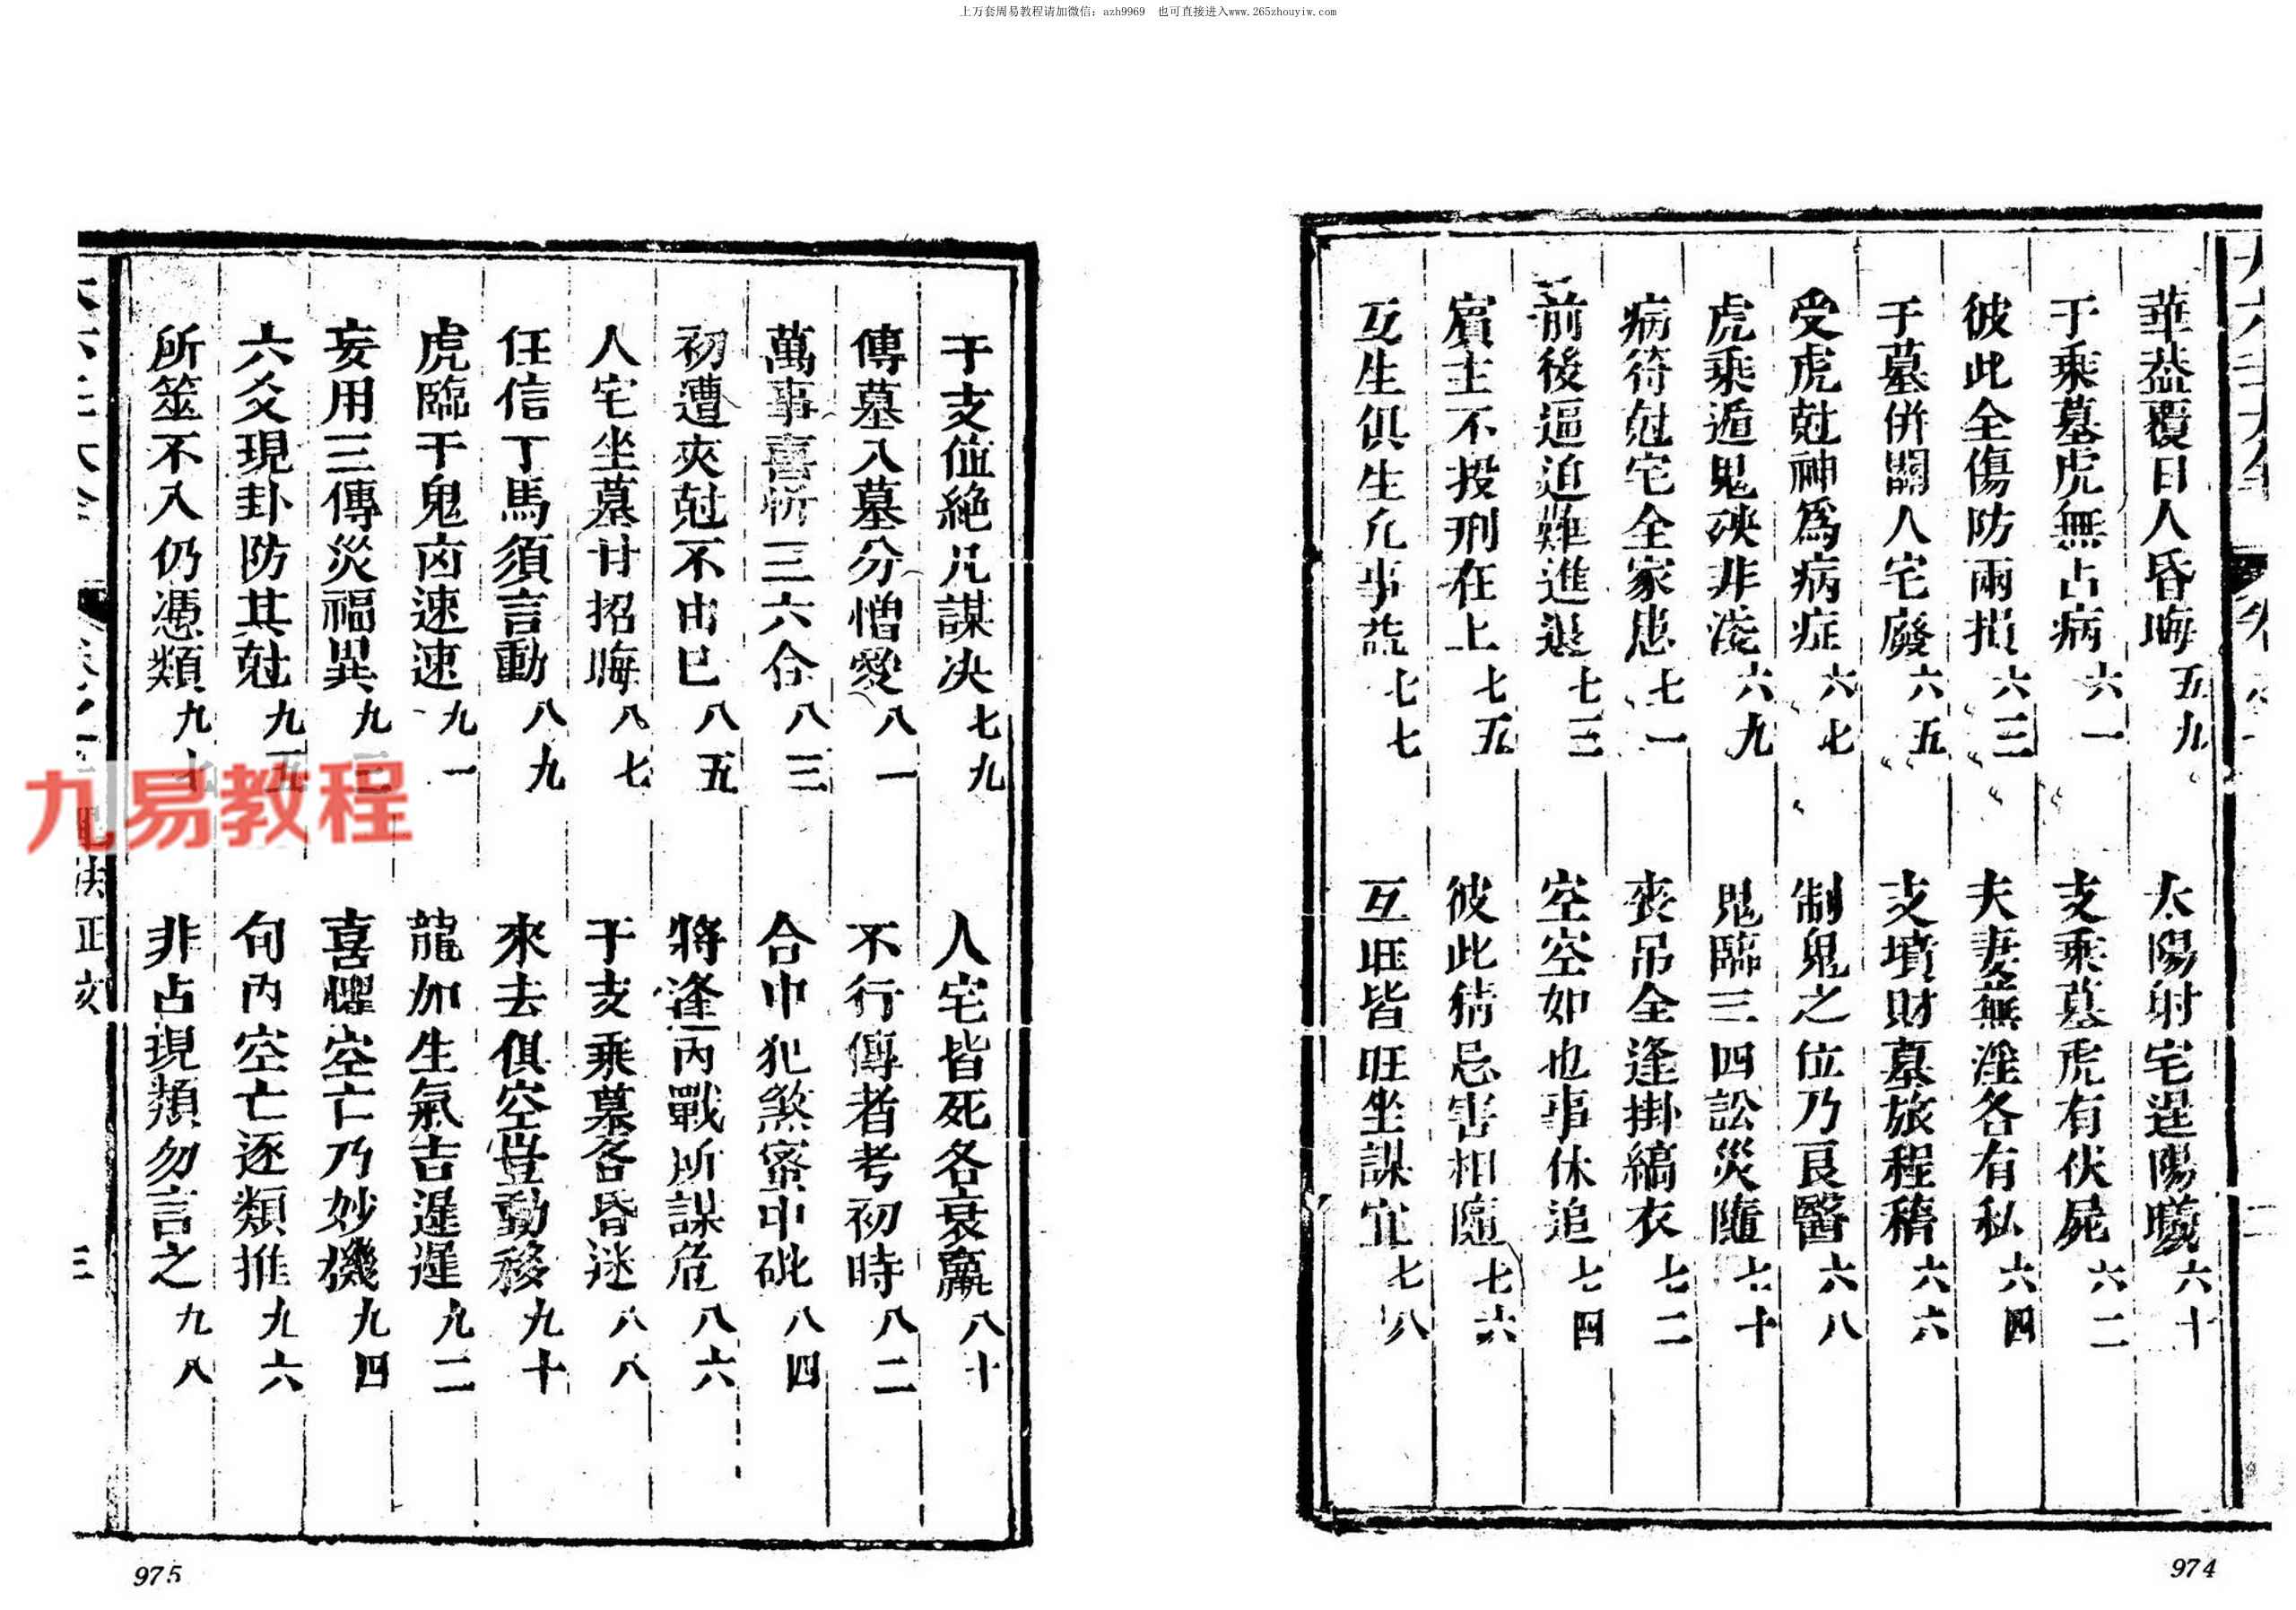 上万套周易教程请加微信：azh9969　也可直接进入www.265zhouyiw.com
華葢覆日人昏晦五九　太陽射宅逞陽曦六十
干乘墓虎無占病六一　支乘墓虎有伏屍六二
彼此全傷防兩損六三　夫妻蕪淫各有私六四
干墓併關人宅廢六五　支墳財墓旅程稽六六
受虎尅神爲病症六七　制鬼之位乃良醫六八
虎乘遁鬼殃非淺六九　鬼臨三四訟災隨七十
病符尅宅全家患七一　喪吊全逢掛縞衣七二
前後逼迫難進退七三　空空如也事休追七四
賓主不投刑在上七五　彼此猜忌害相隨七六
互生俱生凡事益七七　互旺皆旺坐謀宜七八
974
干支値絶凡謀决七九　人宅皆死各衰羸八十
傳墓入墓分憎愛八一　不行傳者考初時八二
萬事喜忻三六合八三　合中犯煞蜜中砒八四
初遭夾尅不由已八五　將逢內戰所謀危八六
人宅坐墓甘招晦八七　干支乘墓各昏迷八八
任信丁馬須言動八九　來去俱空豈動移九十
虎臨干鬼凶速速九一　龍加生氣吉遲遲九二
妄用三傳災福異九三　喜懼空亡乃妙機九四
六爻現卦防其尅九五　旬內空亡逐類推九六
所筮不入仍憑類九七　非占現類勿言之九八
法正文
三
975
九易教程